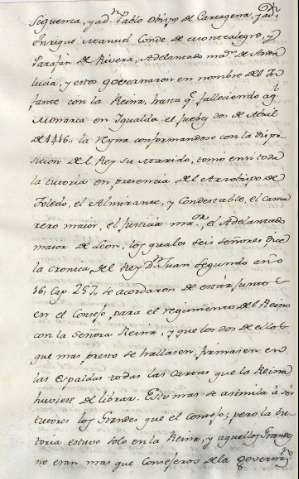 Siguenza, y a dn. Pablo Obispo de Cartagena, y a dn.
Enrique Manuel Conde de Montealegre, y
Perafan de Rivera, Adelantado mor. de Anda
lucia, y estos governaron en nombre del In
fante con la Reina, hasta qe. falleciendo aql.
Monarca en Igualada el jueves dos de Abril
de 1416. la Reyna conformandose con la dispo
sicion del Rey su marido, como en toda
la tutoria en presencia del Arzobispo de
Toledo, el Almirante, y Condestable, el Cama
rero maior, el justicia mor. el Adelantado
maior de Leon, los quales seis señores dice
la cronica del Rey Dn. Juan segundo año
16. cap. 257. se acordaron de estar juntos
en el Consejo, para el regimiento del Reino
con la señora Reina, y que los dos de ellos
que mas presto se hallasen, firmasen en
las espaldas todas las cartas que la Reina
huviese de librar. Esto mas se asemeja a
tutores los Grandes que el Consejo; pero la tu
toria estuvo solo en la Reina, y aquellos Grandes
no eran mas que Consejeros de la governon.